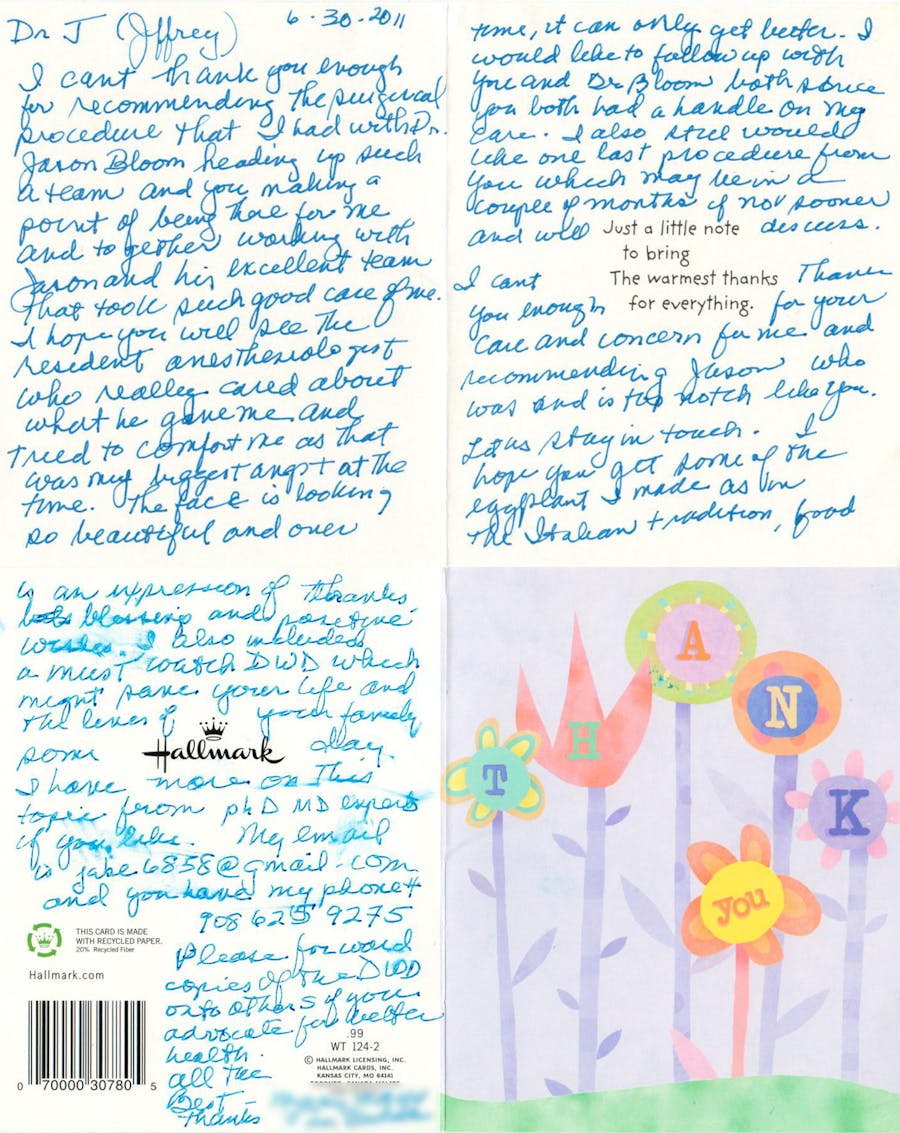 6·30·2011
Dr J (Jffrey)
I cant thank you enough
for recommending the surgical
procedure that I had with Dr.
Jason Bloom heading up such
a team and you making a
point of being there for me
and together working with
Jason and his excellent team
that took such good care of me.
I hope you will see the
resident anesthesiologist
who really cared about
what he gave me and
tried to comfort me as that
was my biggest angst at the
time. The face is looking
so beautiful and over
time, it can only get better. I
would like to follow up with
you and Dr. Bloom both since
you both had a handle on my
care. I also still would
like one last procedure from
you which may be in a
couple of months if not sooner
and will discuss.
Just a little note
to bring
The warmest thanks
for everything.
I cant Thank
you enough for your
care and concern for me and
recommending Jason who
was and is top notch like you.
Let us stay in touch. I
hope you get some of the
eggplant I made as in
the Italian tradition, food
is an expression of thanks
blessing and positive
wishes. I also included
a must watch DVD which
might save your life and
the lives of your family
some day.
Hallmark
I have more on this
topic from phD MD experts
if you like. My email
is jake6858@gmail.com
and you have my phone #
908 625 9275
Please forward
copies of the DVD
onto others if you
advocate for better
health.
All the
Best
Thanks
THIS CARD IS MADE
WITH RECYCLED PAPER.
20% Recycled Fiber
Hallmark.com
0 70000 30780 5
.99
WT 124-2
© HALLMARK LICENSING, INC.
HALLMARK CARDS, INC.
KANSAS CITY, MO 64141
THANK
you